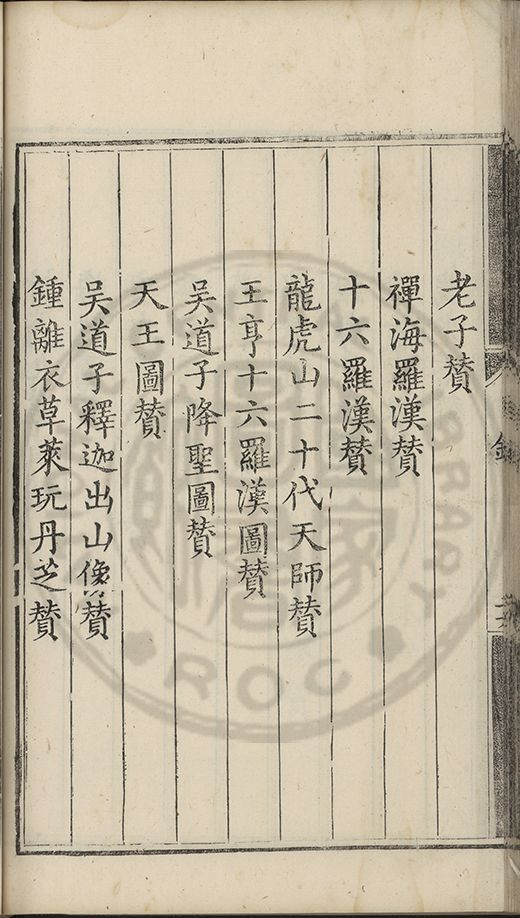 老子賛
禪海羅漢賛
十六羅漢賛
龍虎山二十代天師賛
王亨十六羅漢圖賛
吴道子降聖圖賛
天王圖賛
吴道子釋迦出山像賛
鍾離衣草萊玩丹芝賛
ROC